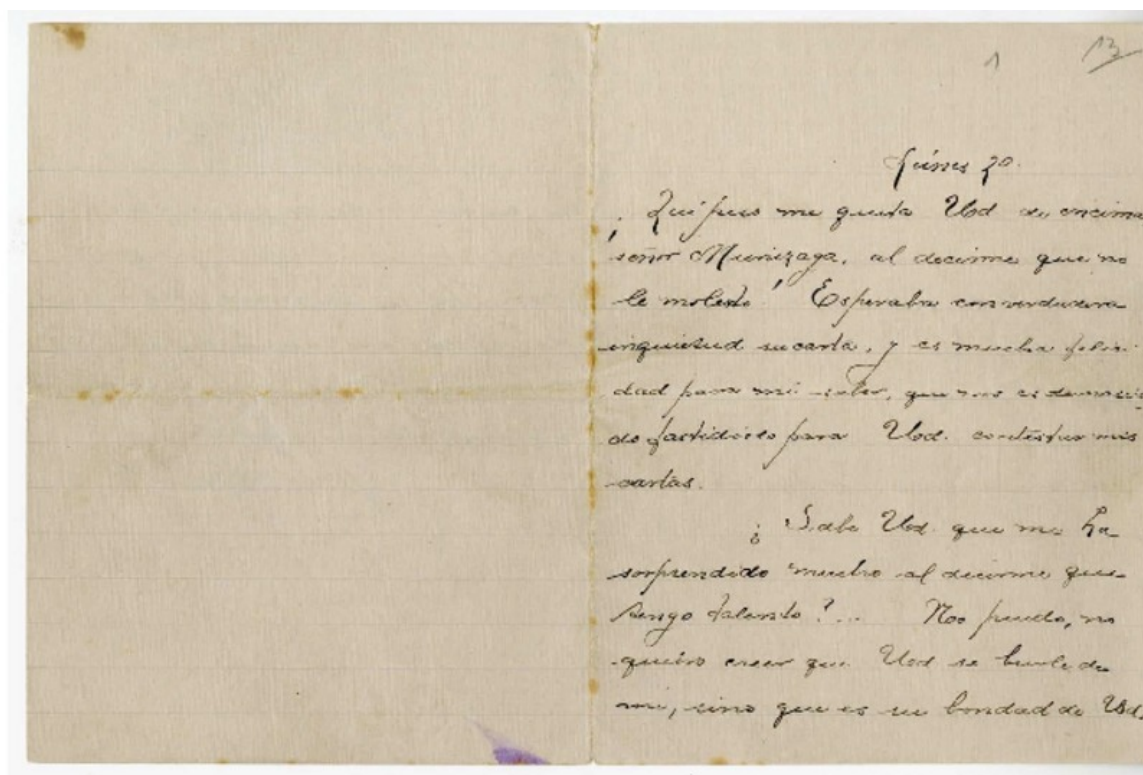 1 13
Lúnes 20.
¡Qué peso me quita Usd. de encima
señor Munizaga, al decirme que no
le molesto! Esperaba con verdadera
inquietud su carta, y es mucha felici-
dad para mí saber, que no es demasia
do fastidioso para Usd. contestar mis
cartas.
¿Sabe Usd. que me ha
sorprendido mucho al decirme que
tengo talento?... No puedo, no
quiero creer que Usd se burle de
mí, sino que es su bondad de Usd,